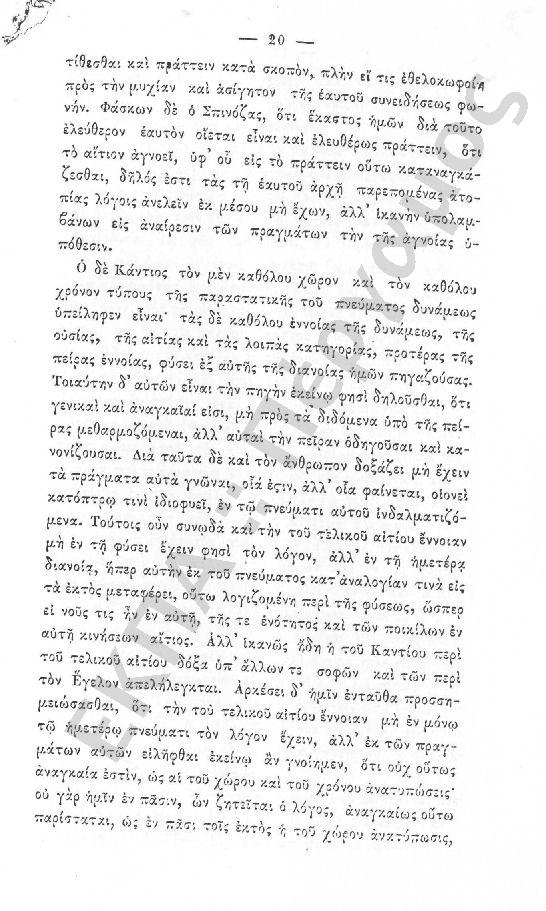 — 20 —
τίθεσθαι καὶ πράττειν κατὰ σκοπὸν, πλὴν εἴ τις ἐθελοκωφοίη
πρὸς τὴν μυχίαν καὶ ἀσίγητον τῆς ἑαυτοῦ συνειδήσεως φω-
νήν. Φάσκων δὲ ὁ Σπινόζας, ὅτι ἕκαστος ἡμῶν διὰ τοῦτο
ἐλεύθερον ἑαυτὸν οἴεται εἶναι καὶ ἐλευθέρως πράττειν, ὅτι
τὸ αἴτιον ἀγνοεῖ, ὑφ' οὗ εἰς τὸ πράττειν οὕτω καταναγκά-
ζεσθαι, δῆλός ἐστι τὰς τῇ ἑαυτοῦ ἀρχῇ παρεπομένας ἀτο-
πίας λόγοις ἀνελεῖν ἐκ μέσου μὴ ἔχων, ἀλλ' ἱκανὴν ὑπολαμ-
βάνων εἰς ἀναίρεσιν τῶν πραγμάτων τὴν τῆς ἀγνοίας ὑ-
πόθεσιν.
Ὁ δὲ Κάντιος τὸν μὲν καθόλου χῶρον καὶ τὸν καθόλου
χρόνον τύπους τῆς παραστατικῆς τοῦ πνεύματος δυνάμεως
ὑπείληφεν εἶναι· τὰς δὲ καθόλου ἐννοίας τῆς δυνάμεως, τῆς
οὐσίας, τῆς αἰτίας καὶ τὰς λοιπὰς κατηγορίας, προτέρας τῆς
πείρας ἐννοίας, φύσει ἐξ αὐτῆς τῆς διανοίας ἡμῶν πηγαζούσας.
Τοιαύτην δ' αὐτῶν εἶναι τὴν πηγὴν ἐκείνῳ φησὶ δηλοῦσθαι, ὅτι
γενικαὶ καὶ ἀναγκαῖαί εἰσι, μὴ πρὸς τὰ διδόμενα ὑπὸ τῆς πεί-
ρας μεθαρμοζόμεναι, ἀλλ' αὐταὶ τὴν πεῖραν ὁδηγοῦσαι καὶ κα-
νονίζουσαι. Διὰ ταῦτα δὲ καὶ τὸν ἄνθρωπον δοξάζει μὴ ἔχειν
τὰ πράγματα αὐτὰ γνῶναι, οἷά ἐστιν, ἀλλ' οἷα φαίνεται, οἱονεὶ
κατόπτρῳ τινὶ ἰδιοφυεῖ, ἐν τῷ πνεύματι αὐτοῦ ἰνδαλματιζό-
μενα. Τούτοις οὖν συνῳδὰ καὶ τὴν τοῦ τελικοῦ αἰτίου ἔννοιαν
μὴ ἐν τῇ φύσει ἔχειν φησὶ τὸν λόγον, ἀλλ' ἐν τῇ ἡμετέρᾳ
διανοίᾳ, ἥπερ αὐτὴν ἐκ τοῦ πνεύματος κατ' ἀναλογίαν τινὰ εἰς
τὰ ἐκτὸς μεταφέρει, οὕτω λογιζομένη περὶ τῆς φύσεως, ὥσπερ
εἰ νοῦς τις ἦν ἐν αὐτῇ, τῆς τε ἑνότητος καὶ τῶν ποικίλων ἐν
αὐτῇ κινήσεων αἴτιος. Ἀλλ' ἱκανῶς ἤδη ἡ τοῦ Καντίου περὶ
τοῦ τελικοῦ αἰτίου δόξα ὑπ' ἄλλων τε σοφῶν καὶ τῶν περὶ
τὸν Ἕγελον ἀπελήλεγκται. Ἀρκέσει δ' ἡμῖν ἐνταῦθα προσση-
μειώσασθαι, ὅτι τὴν τοῦ τελικοῦ αἰτίου ἔννοιαν μὴ ἐν μόνῳ
τῷ ἡμετέρῳ πνεύματι τὸν λόγον ἔχειν, ἀλλ' ἐκ τῶν πραγ-
μάτων αὐτῶν εἰλῆφθαι ἐκείνῳ ἂν γνοίημεν, ὅτι οὐχ οὕτως
ἀναγκαία ἐστὶν, ὡς αἱ τοῦ χώρου καὶ τοῦ χρόνου ἀνατυπώσεις·
οὐ γὰρ ἡμῖν ἐν πᾶσιν, ὧν ζητεῖται ὁ λόγος, ἀναγκαίως οὕτω
παρίσταται, ὡς ἐν πᾶσι τοῖς ἐκτὸς ἡ τοῦ χώρου ἀνατύπωσις,